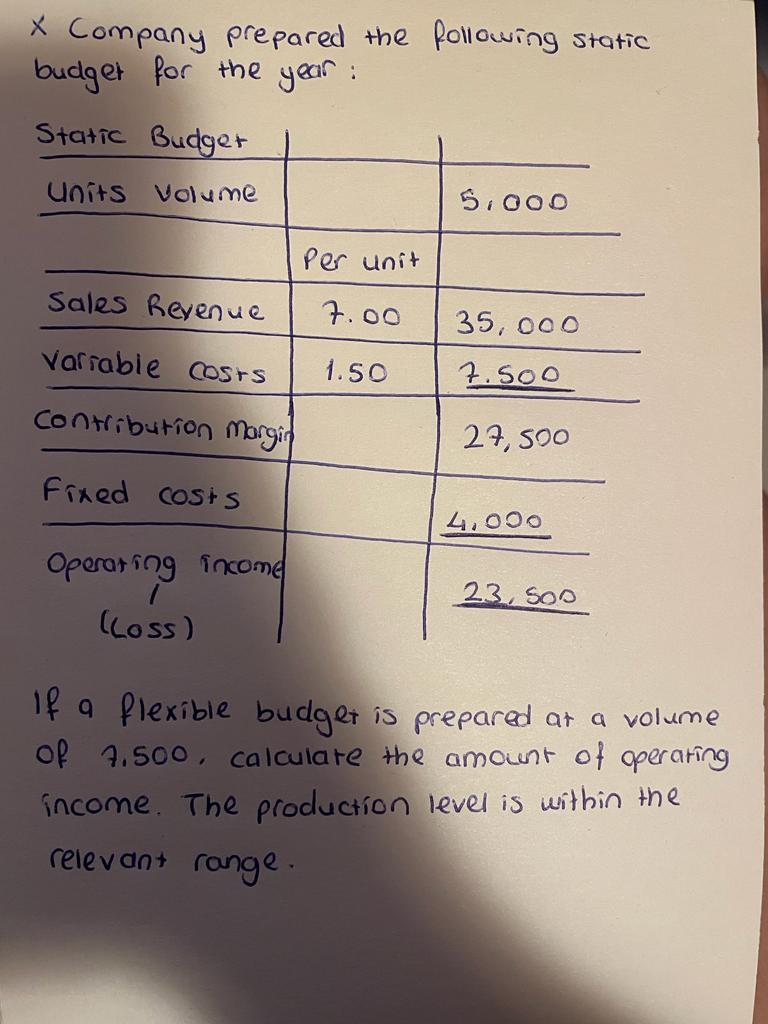 X Company prepared the following static
budget for the year:
Static Budget
Units Volume 5,000
Per unit
Sales Revenue 7.00 35,000
Variable costs 1.50 7.500
Contribution Margin 27,500
Fixed costs 4,000
Operating income 23,500
/
(Loss)
If a flexible budget is prepared at a volume
of 7,500, calculate the amount of operating
income. The production level is within the
relevant range.